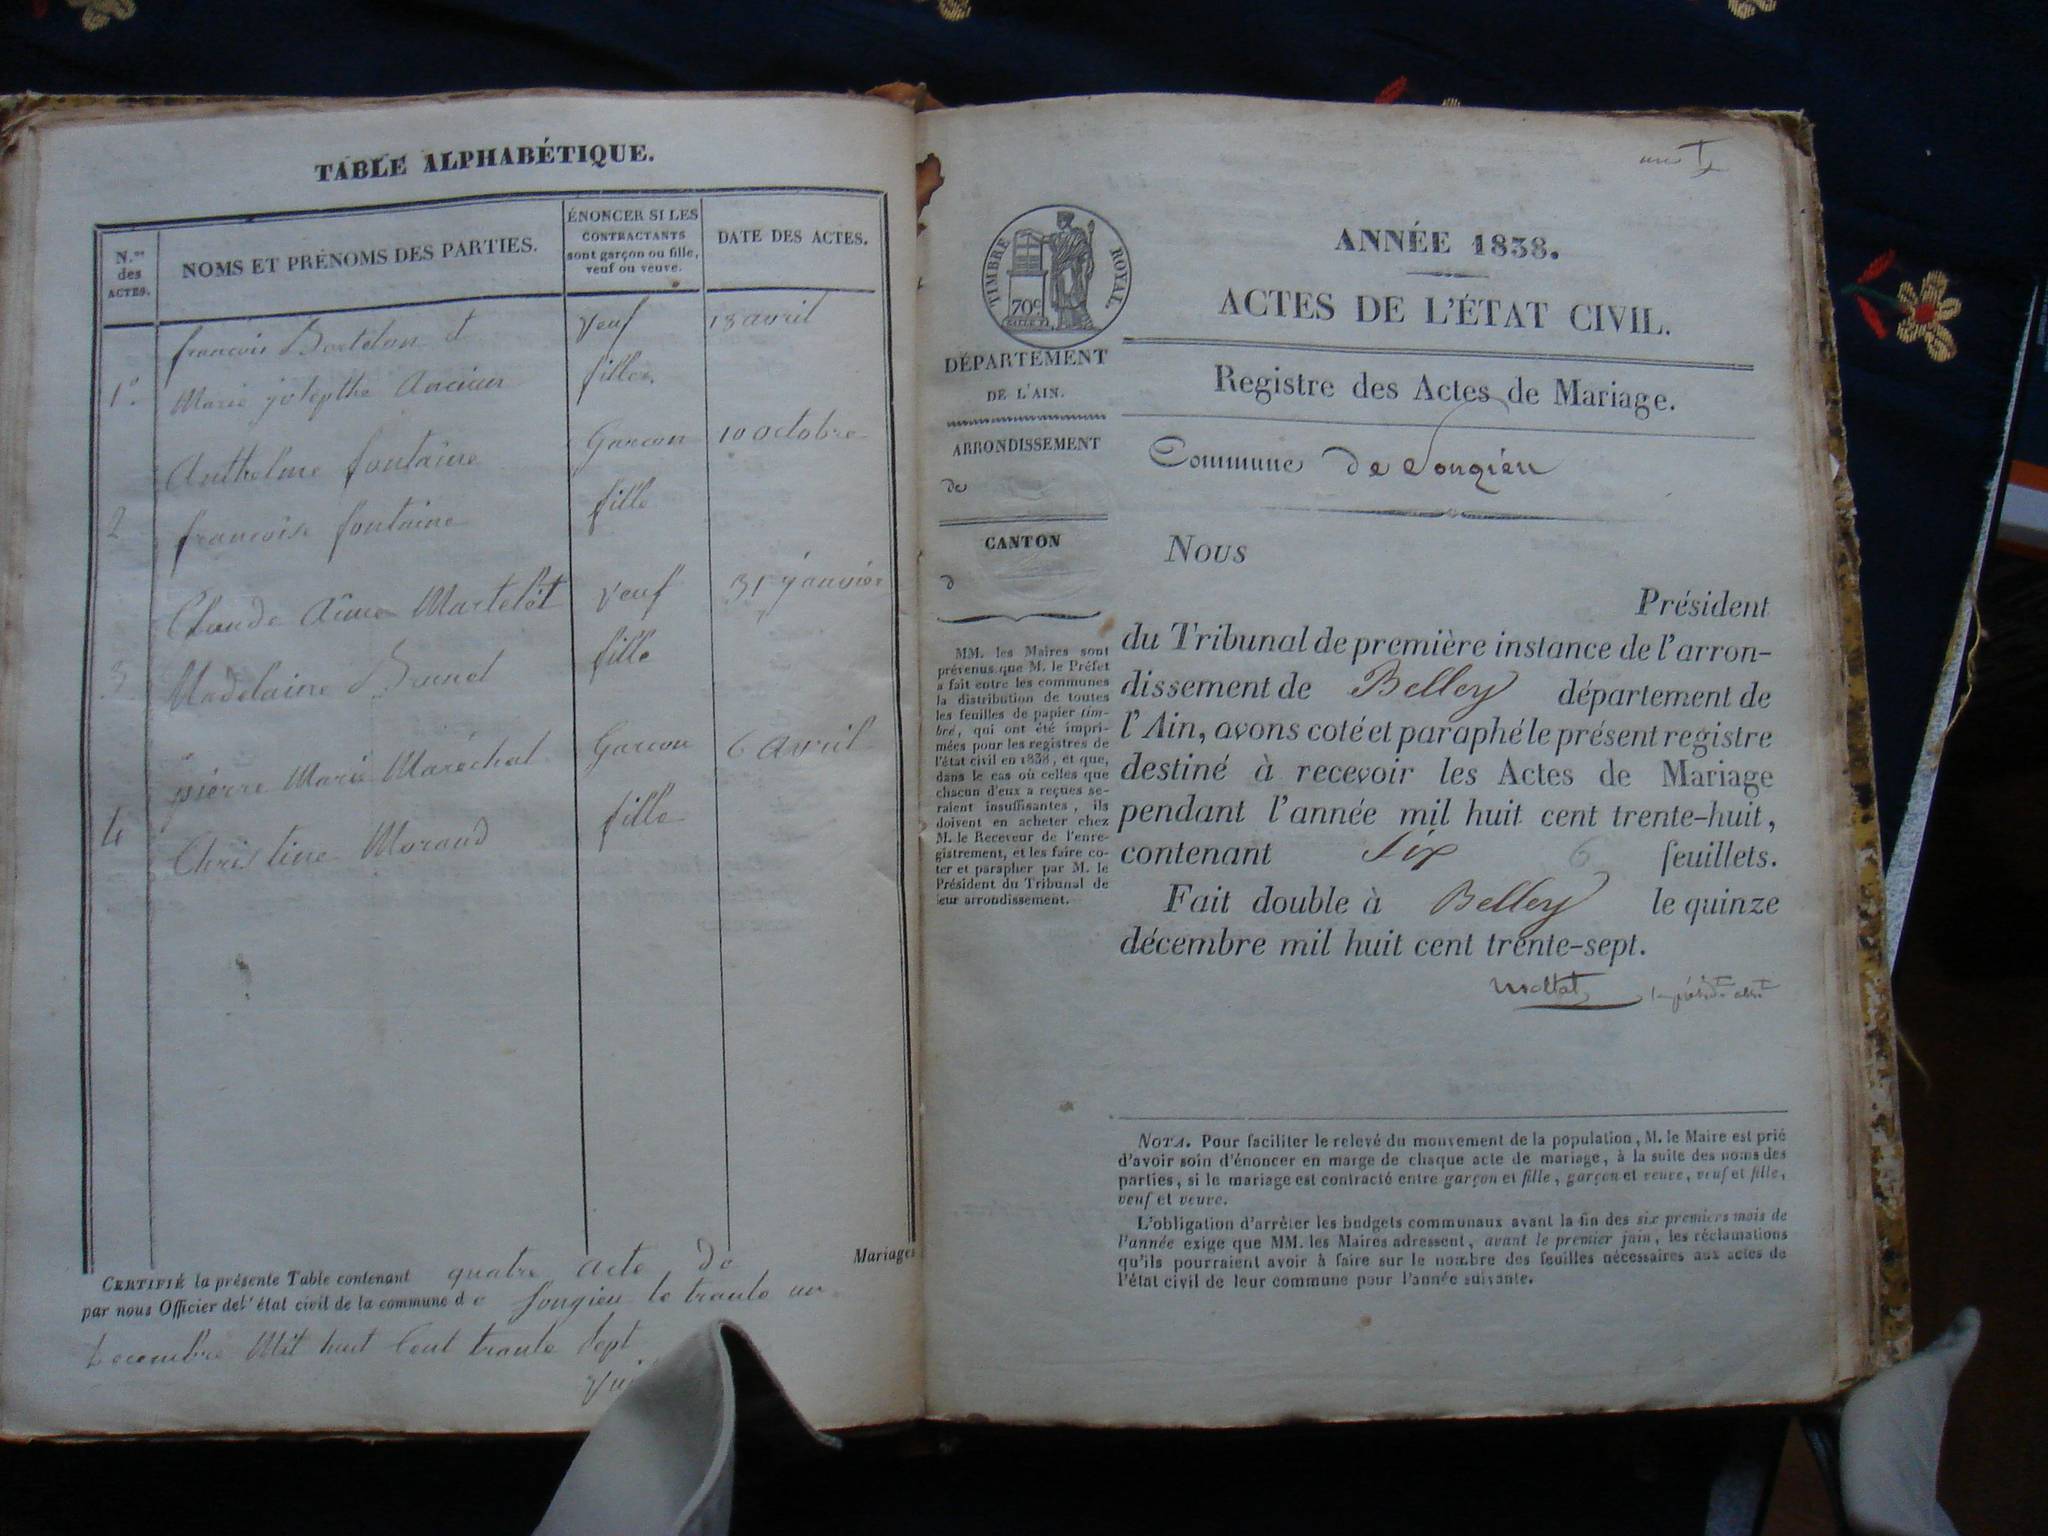 TABLE ALPHABÉTIQUE.
N.os des ACTES.
NOMS ET PRÉNOMS DES PARTIES.
ÉNONCER SI LES
CONTRACTANTS
sont garçon ou fille,
veuf ou veuve.
DATE DES ACTES.
françois Bertelon et veuf 13 avril
1º. Marie josepthe Ancian fille
Anthelme fontaine Garcon 10 octobre
2 francoise fontaine fille
Claude Aime Martelet veuf 31 janvier
3 Madelaine Brunet fille
pierre Marie Maréchal Garcon 6 avril
4 Christine Morand fille
CERTIFIÉ la présente Table contenant quatre acte de Mariages
par nous Officier de l'état civil de la commune de Songieu le trante un
Decembre Mil huit Cent trante Sept
TIMBRE ROYAL
70c
DÉPARTEMENT
DE L'AIN.
ARRONDISSEMENT
de
CANTON
d
MM. les Maires sont
prévenus que M. le Préfet
a fait entre les communes
la distribution de toutes
les feuilles de papier tim-
bré, qui ont été impri-
mées pour les registres de
l'état civil en 1838, et que,
dans le cas où celles que
chacun d'eux a reçues se-
raient insuffisantes, ils
doivent en acheter chez
M. le Receveur de l'enre-
gistrement, et les faire co-
ter et parapher par M. le
Président du Tribunal de
leur arrondissement.
ANNÉE 1838.
ACTES DE L'ÉTAT CIVIL.
Registre des Actes de Mariage.
Commune de Songieu
Nous
Président
du Tribunal de première instance de l'arron-
dissement de Belley département de
l'Ain, avons coté et paraphé le présent registre
destiné à recevoir les Actes de Mariage
pendant l'année mil huit cent trente-huit,
contenant Six 6 feuillets.
Fait double à Belley le quinze
décembre mil huit cent trente-sept.
NOTA. Pour faciliter le relevé du mouvement de la population, M. le Maire est prié
d'avoir soin d'énoncer en marge de chaque acte de mariage, à la suite des noms des
parties, si le mariage est contracté entre garçon et fille, garçon et veuve, veuf et fille,
veuf et veuve.
L'obligation d'arrêter les budgets communaux avant la fin des six premiers mois de
l'année exige que MM. les Maires adressent, avant le premier juin, les réclamations
qu'ils pourraient avoir à faire sur le nombre des feuilles nécessaires aux actes de
l'état civil de leur commune pour l'année suivante.